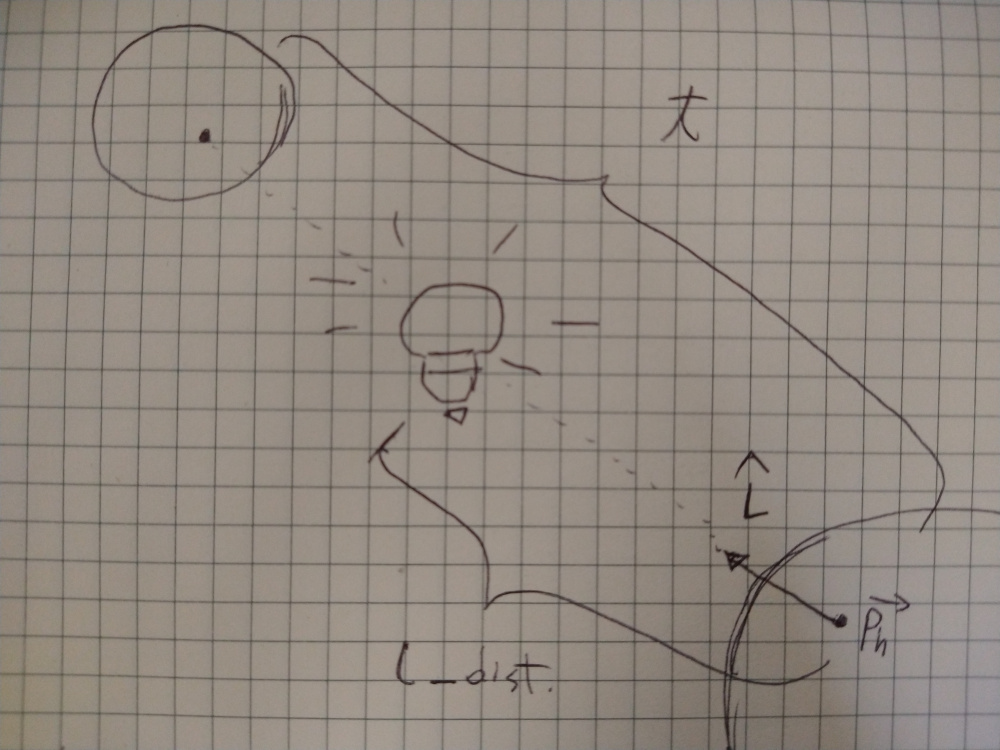 t
^
L
→
Ph
L_dist.